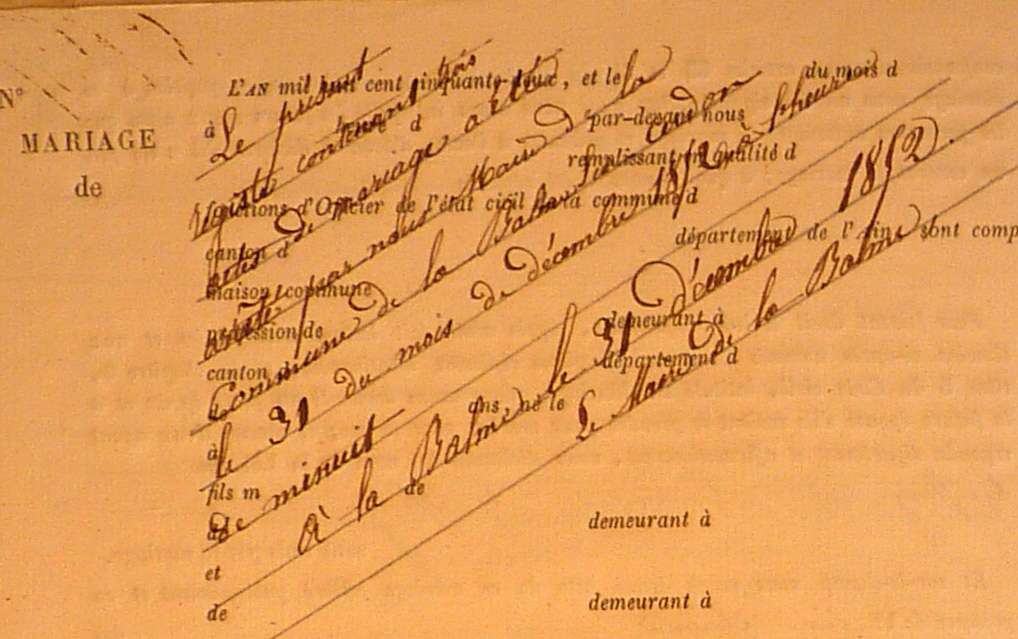 N°
MARIAGE
de
L'AN mil huit cent cinquante-deux, et le du mois d
à heure d par-devant nous
remplissant en qualité d
fonctions d'Officier de l'état civil de la commune d
canton d département de l'Ain, sont comp
maison commune
profession de demeurant à
canton d département d
à ans, né le
fils m
de de demeurant à
et
de demeurant à
Le présent
registre contenant trois
actes de mariage a été
arrêté par nous Maire de la
Commune de la Balme sur cerdon
le 31 du mois de décembre 1852 à heure
de minuit
à la Balme le 31 décembre 1852.
Le Maire de la Balme